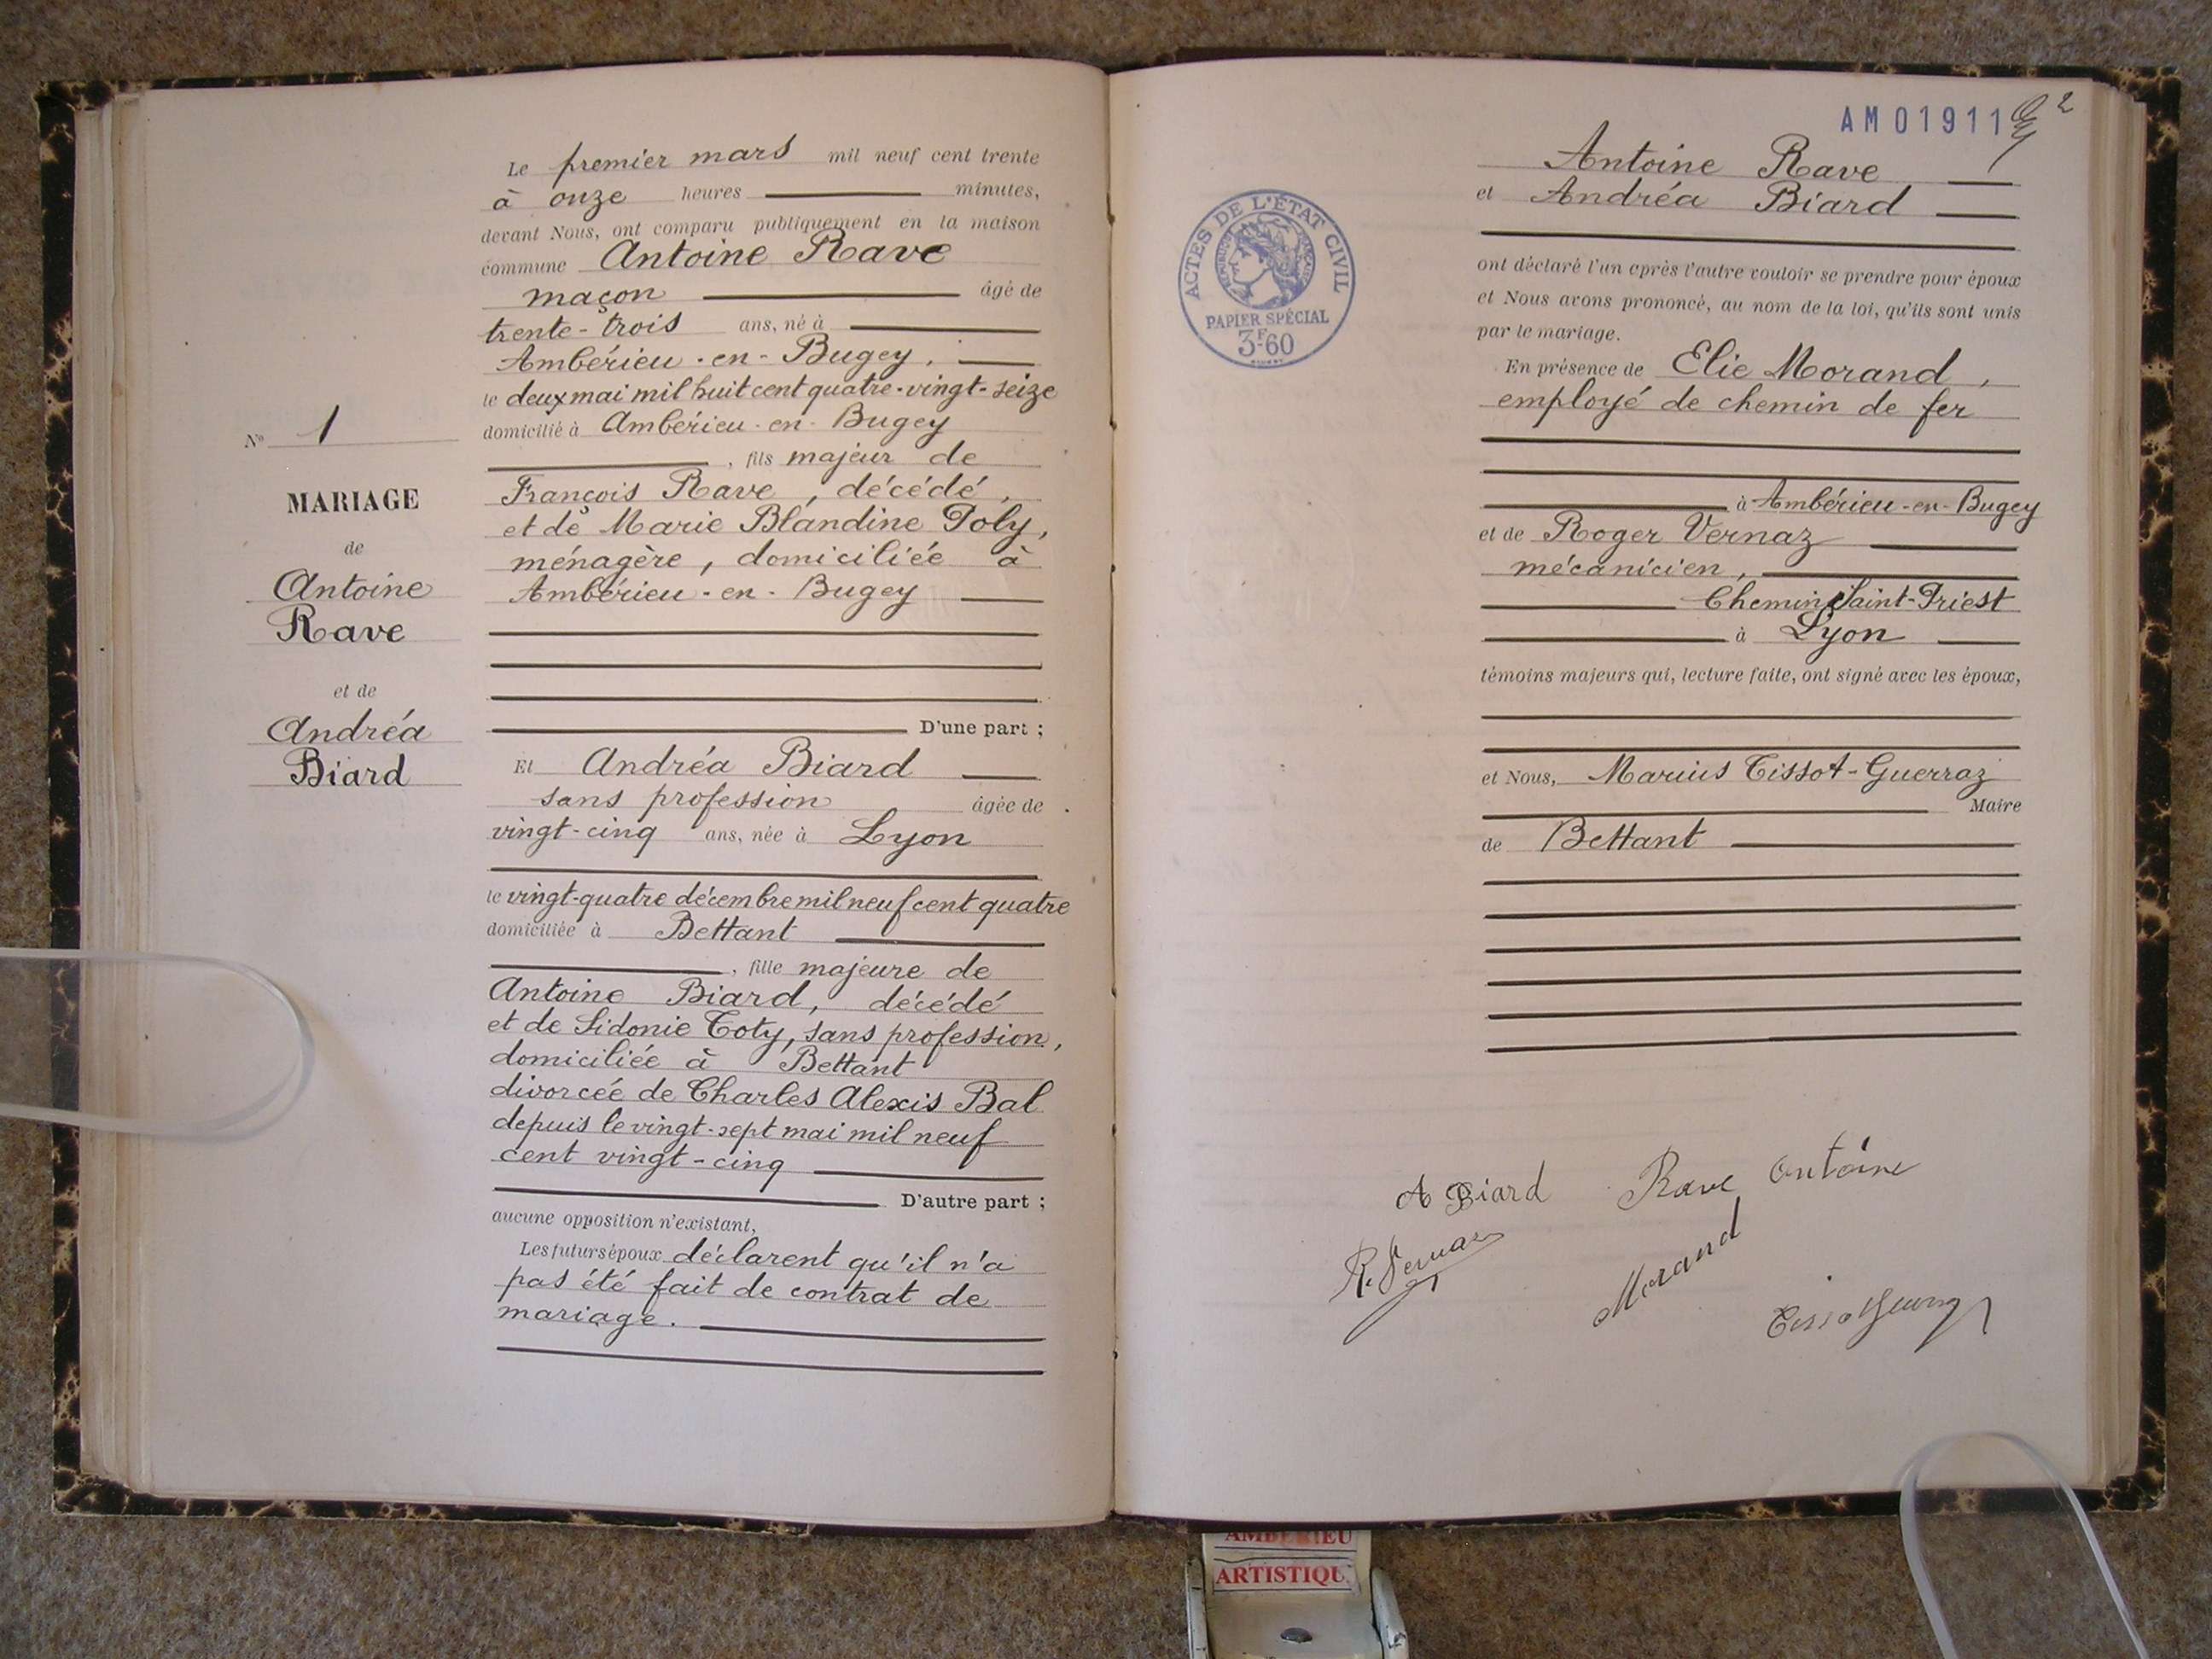 Le premier mars mil neuf cent trente
à onze heures minutes,
devant Nous, ont comparu publiquement en la maison
commune Antoine Rave
maçon âgé de
trente-trois ans, né à
Ambérieu-en-Bugey,
le deux mai mil huit cent quatre-vingt-seize
domicilié à Ambérieu-en-Bugey
, fils majeur de
François Rave, décédé,
et de Marie Blandine Poly,
ménagère, domiciliée à
Ambérieu-en-Bugey
N° 1
MARIAGE
de
Antoine
Rave
et de
Andréa
Biard
D'une part ;
Et Andréa Biard
sans profession âgée de
vingt-cinq ans, née à Lyon
le vingt-quatre décembre mil neuf cent quatre
domiciliée à Bettant
, fille majeure de
Antoine Biard, décédé
et de Sidonie Toty, sans profession,
domiciliée à Bettant
divorcée de Charles Alexis Bal
depuis le vingt-sept mai mil neuf
cent vingt-cinq
D'autre part ;
aucune opposition n'existant,
Les futurs époux déclarent qu'il n'a
pas été fait de contrat de
mariage.
AM01911
2
Antoine Rave
et Andréa Biard
ACTES DE L'ÉTAT CIVIL
RÉPUBLIQUE FRANÇAISE
PAPIER SPÉCIAL
3F60
ont déclaré l'un après l'autre vouloir se prendre pour époux
et Nous avons prononcé, au nom de la loi, qu'ils sont unis
par le mariage.
En présence de Elie Morand,
employé de chemin de fer
à Ambérieu-en-Bugey
et de Roger Vernaz
mécanicien,
Chemin Saint-Priest
à Lyon
témoins majeurs qui, lecture faite, ont signé avec les époux,
et Nous, Marius Tissot-Guerraz
Maire
de Bettant
A Biard Rave Antoine
R. Vernaz
Morand
AMBERIEU
ARTISTIQU